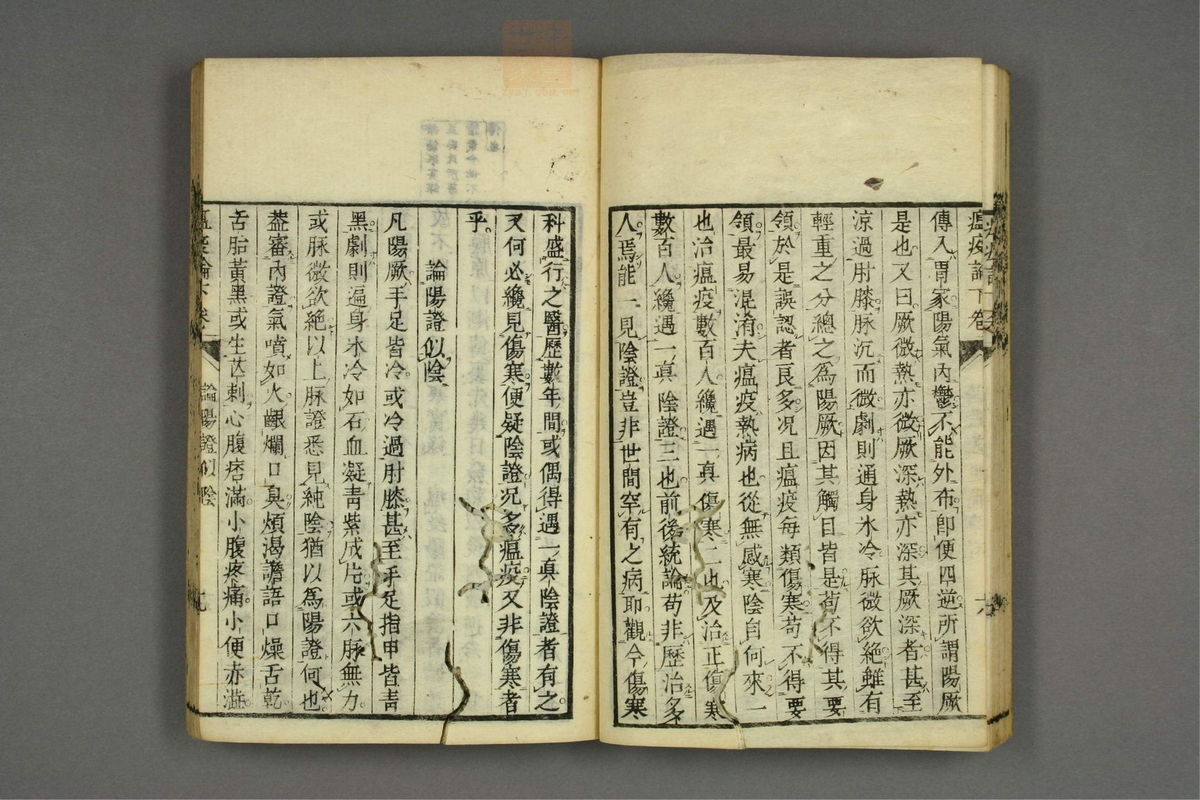 瘟疫論下卷
傳入胃家陽氣内鬱不能外布即便四逆所謂陽厥
是也又曰厥微熱亦微厥深熱亦深其厥深者甚至
涼過肘膝脉沉而微劇則通身冰冷脉微欲絶雖有
輕重之分總之為陽厥因其觸目皆是苟不得其要
領於是誤認者良多况且瘟疫每類傷寒苟不得要
領最易混淆夫瘟疫熱病也從無感寒陰自何來一
也治瘟疫數百人纔遇一真傷寒二也及治正傷寒
數百人纔遇一真陰證三也前後統論苟非歷治多
人焉能一見陰證豈非世間罕有之病耶觀今傷寒
科盛行之醫歷數年間或偶得遇一真陰證者有之
又何必纔見傷寒便疑陰證况多瘟疫又非傷寒者
乎
論陽證似陰
凡陽厥手足皆冷或冷過肘膝甚至手足指甲皆青
黑劇則遍身冰冷如石血凝青紫成片或六脉無力
或脉微欲絶以上脉證悉見純陰猶以為陽證何也
葢審内證氣噴如火齦爛口臭煩渴譫語口燥舌乾
舌胎黃黑或生芒刺心腹痞滿小腹疼痛小便赤澁
瘟疫論下卷
論陽證似陰
十九